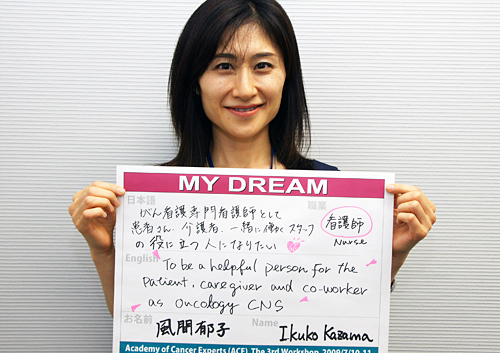 MY DREAM
日本語
職業
がん看護専門看護師として
患者さん、介護者、一緒に働くスタッフ
の役に立つ人になりたい
看護師
Nurse
English
To be a helpful person for the
patient, caregiver and co-worker
as oncology CNS
お名前
風間郁子
Name
Ikuko Kazama
Academy of Cancer Experts (ACE) The 3rd Workshop 2009/7/10-11